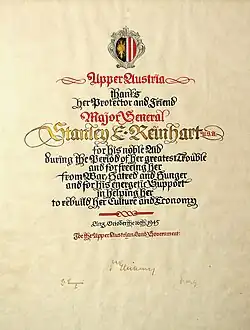 Upper Austria
thanks
her Protector and Friend
Major General
Stanley E. Reinhart U.S.A.
for his noble Aid
during the Period of her greatest Trouble
and for freeing her
from War, Hatred and Hunger
and for his energetic Support
in helping her
to rebuild her Culture and Economy
Linz, October the 10th, 1945
The Upper Austrian Land Government: